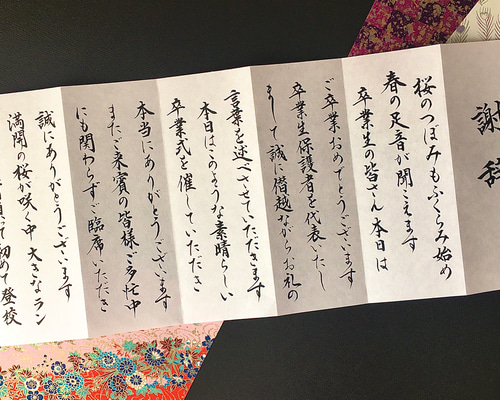 謝辞
桜のつぼみもふくらみ始め
春の足音が聞こえます
卒業生の皆さん 本日は
ご卒業おめでとうございます
卒業生保護者を代表いたし
まして 誠に僭越ながらお礼の
言葉を述べさせていただきます
本日はこのような素晴らしい
卒業式を催していただき
本当にありがとうございます
またご来賓の皆様 ご多忙中
にも関わらずご臨席いただき
誠にありがとうございます
満開の桜が咲く中 大きなラン
初めて登校